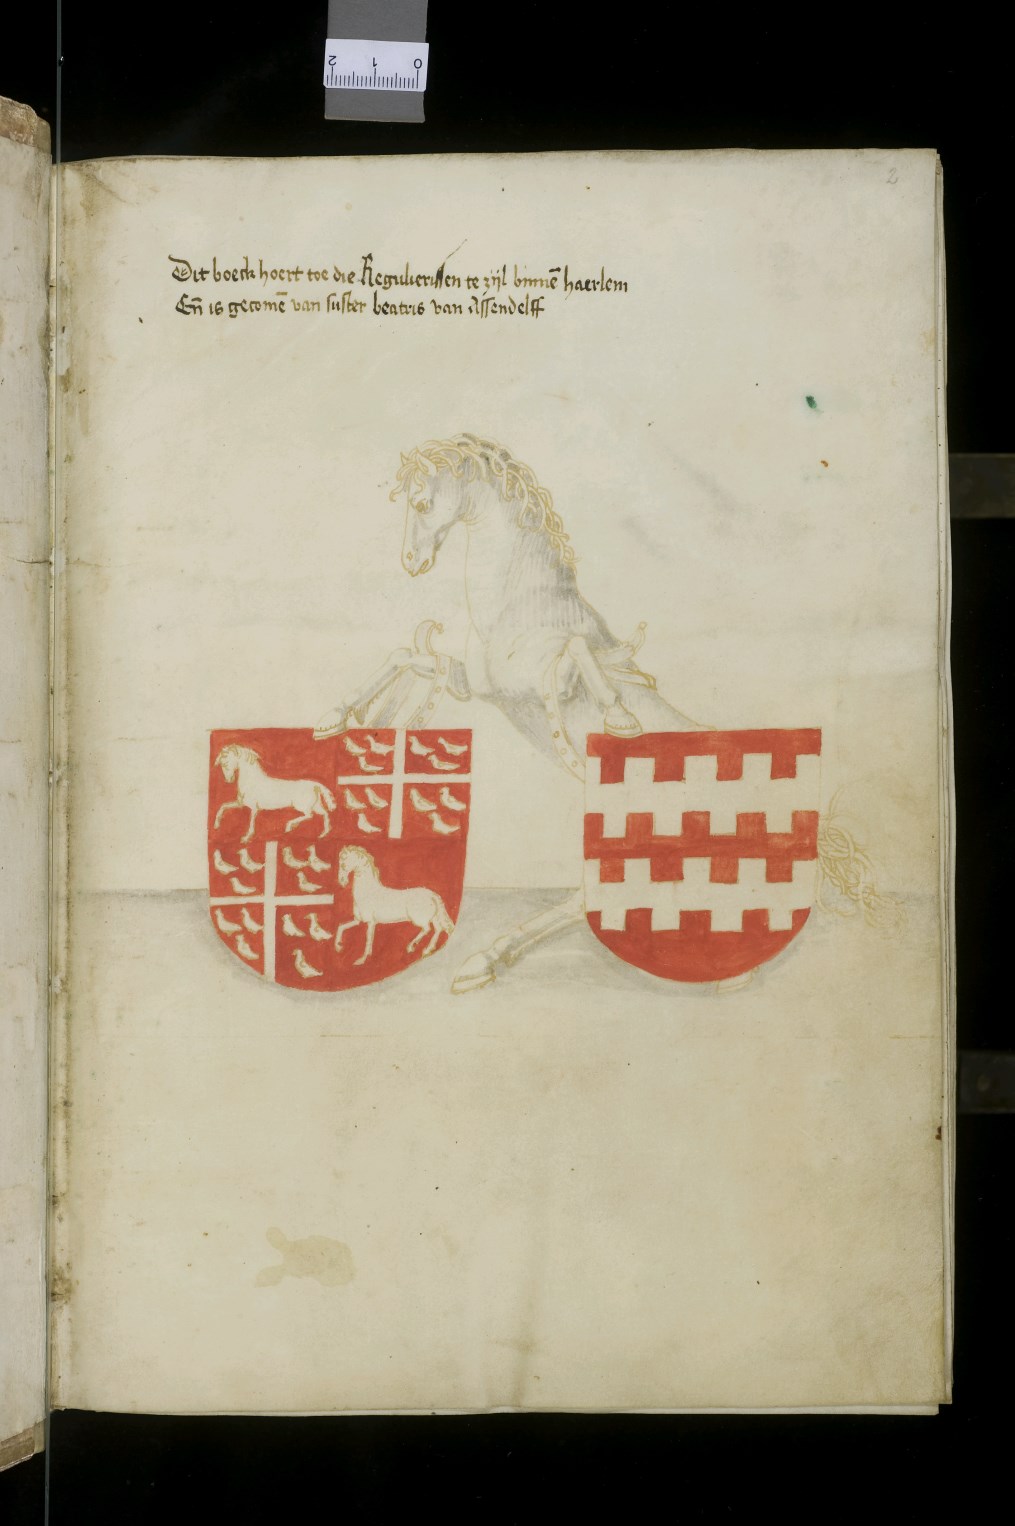 2 1 0
2
Dit boeck hoert toe die Regulierissen te zijl binnē haerlem
En̄ is gecomē van suster beatris van Assendelff